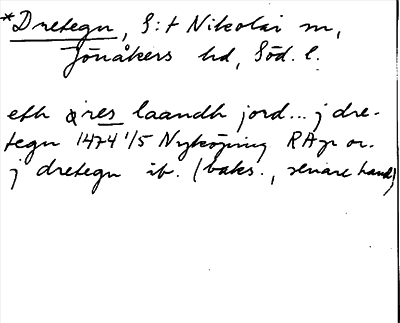 *Dretegn, S:t Nikolai sn,
Jönåkers hd, Söd. l.
eth øres laandh jord... j dre-
tegn 1474 1/5 Nyköping RAp or.
j dretegn ib. (baks., senare hand)